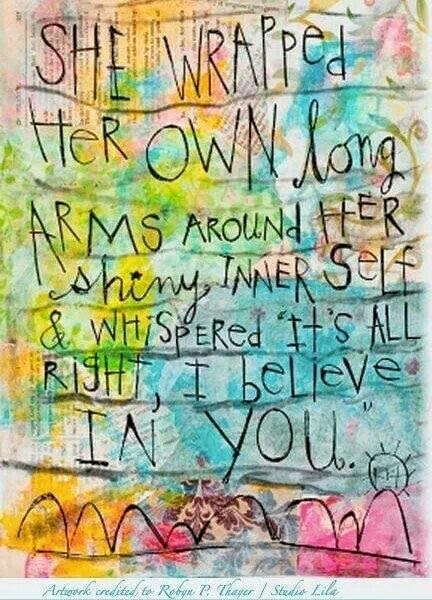 SHE WRAPPed
HER OWN long
ARMS AROUNd HER
shiny INNER SELF
& WHiSPERed "It's ALL
RIGHT, I beLIeVe
IN YOU."
Artwork credited to Robyn P. Thayer | Studio Lila